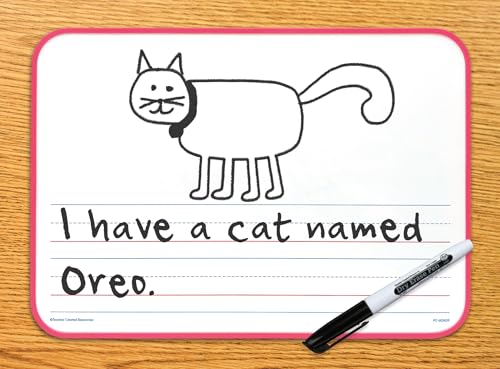 I have a cat named
Oreo.
Dry Erase Pen
©Teacher Created Resources